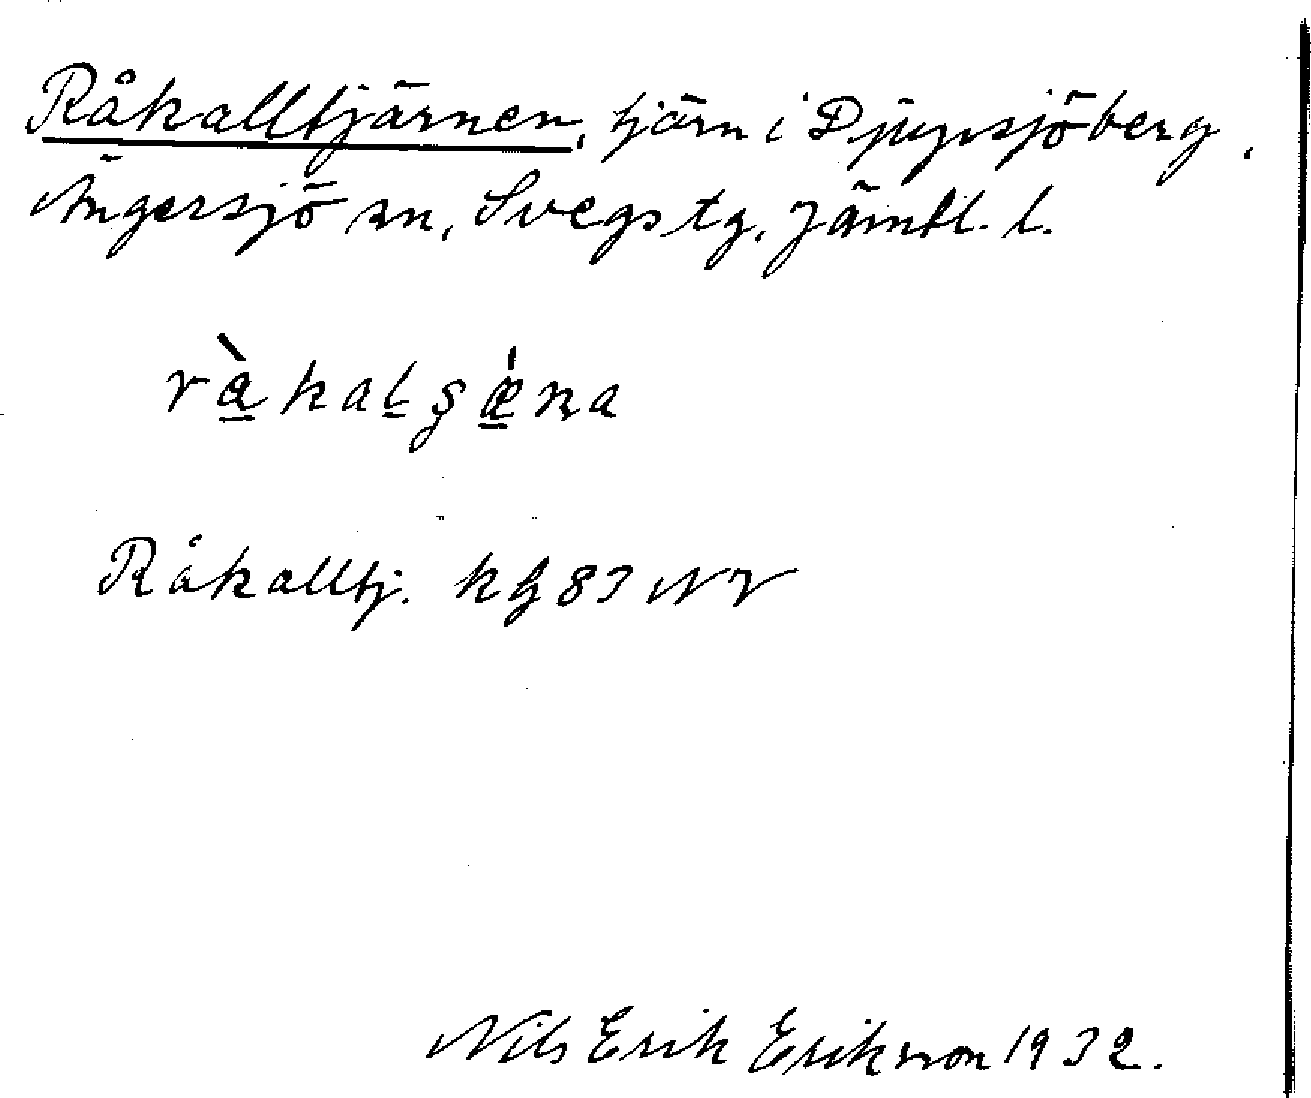 Råkalltjärnen, tjärn i Djupsjöberg,
Ängersjö sn, Svegs tg, Jämtl. l.
Råkalltj. kg 83 NV
Nils Erik Erikson 1932.